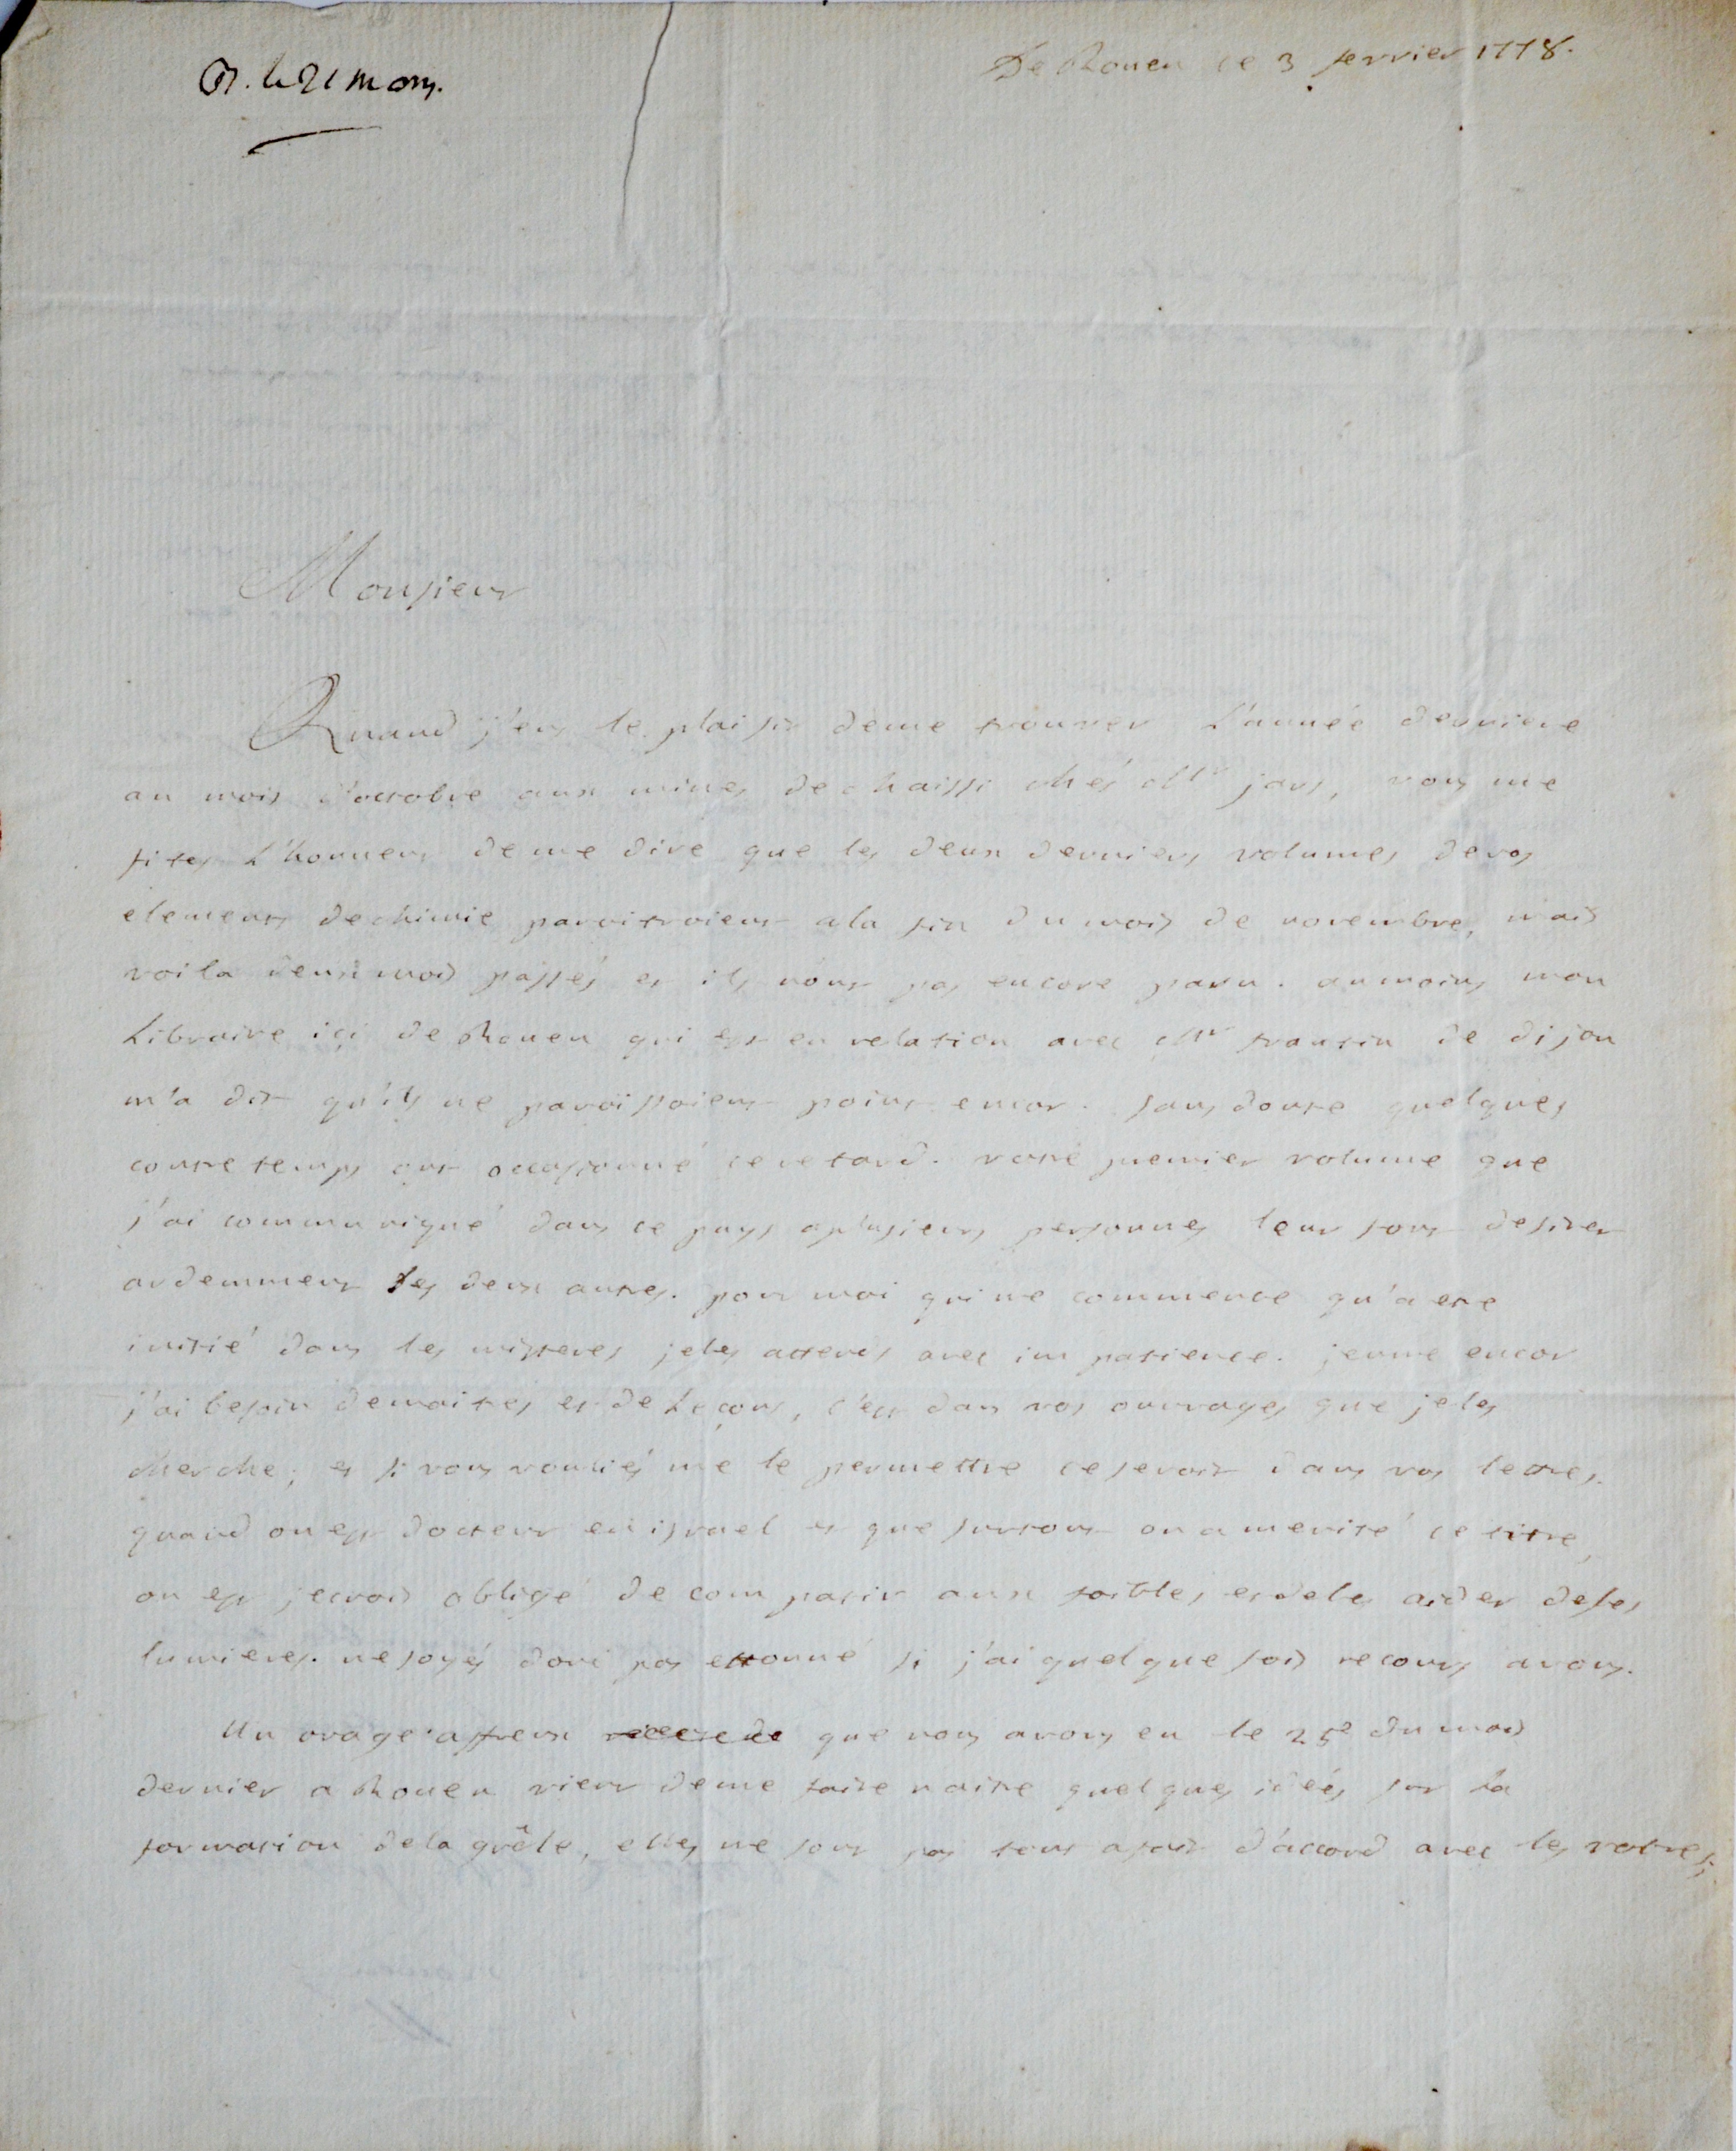 De Rouen ce 3 fevrier 1778.
Monsieur
Quand j'eus le plaisir deme trouver L'année derniere
au mois d'octobre aux mines de chaissi chés Mr jars, vous me
fites L'honneur de me dire que les deux derniers volumes de vos
elements de chimie paroitroient ala fin du mois de novembre, mais
voila deux mois passés et ils n'ont pas encore paru. aumoins mon
Libraire ici de Rouen qui est en relation avec Mr frantin de dijon
m'a dit qu'ils ne paroissoient point encor. sans doute quelques
contretemps ont occasionné ce retard. votre premier volume que
j'ai communiqué dans ce pays aplusieurs personnes leur font desirer
ardemment les deux autres. pour moi qui ne commence qu'a etre
initié dans les misteres jeles attends avec impatience. jeune encor
j'ai besoin demaitres et de Leçons, c'est dans vos ouvrages que jeles
cherche; et si vous vouliés me le permettre ce seroit dans vos lettres.
quand on est docteur en israel et que surtout on a merité ce titre,
on est jecrois obligé de compatir aux foibles et deles aider deses
lumieres. ne soyés donc pas ettonné si j'ai quelque fois recours avous.
Un orage affreux que nous avons eu le 25e du mois
dernier a Rouen vient deme faire naitre quelques idées sur la
formation dela grêle, elles ne sont pas tout afait d'accord avec les votres;